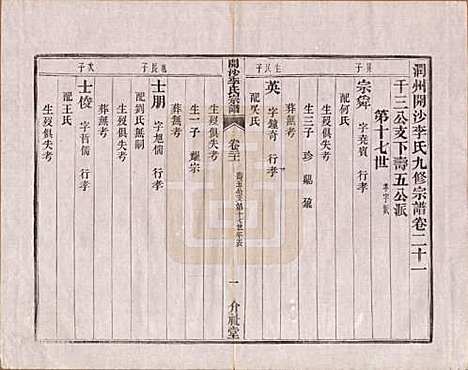 潤州開沙李氏九修宗譜卷二十一
千三公支下壽五公派
第十七世 孝字派
昇子
宗舜 字堯賓 行孝
配何氏
生歿俱失考
生三子 珍
葬無考
生長子
英 字鍾奇 行孝
配吳氏
生歿俱失考
生一子 耀宗
葬無考
開沙李氏宗譜 卷二十一 壽五公支第十七世年表 一 介祉堂
長子
士朋 字旭儒 行孝
配劉氏無嗣
生歿俱失考
葬無考
次子
士俊 字哲儒 行孝
配王氏
生歿俱失考